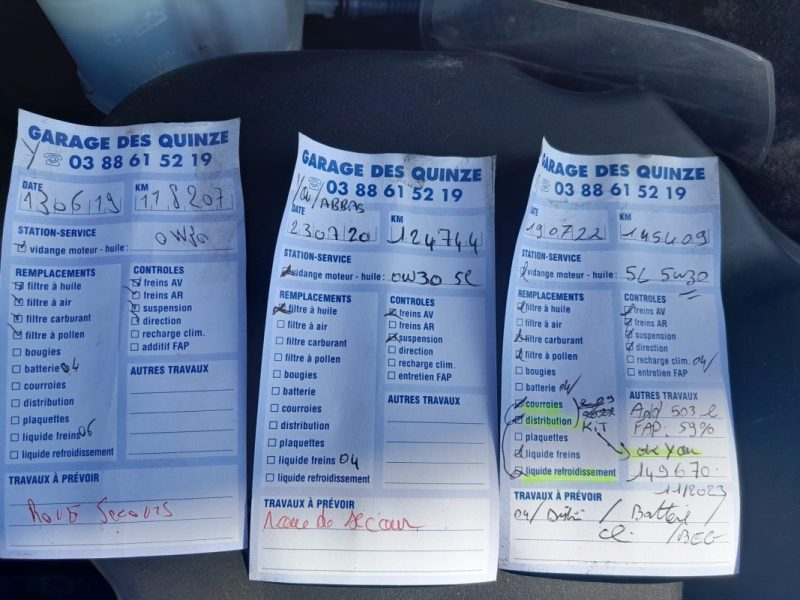 GARAGE DES QUINZE
03 88 61 52 19
DATE
KM
130619
118207
STATION-SERVICE
vidange moteur - huile: 0W30
REMPLACEMENTS
filtre à huile
filtre à air
filtre carburant
filtre à pollen
bougies
batterie 04
courroies
distribution
plaquettes
liquide freins 06
liquide refroidissement
CONTROLES
freins AV
freins AR
suspension
direction
recharge clim.
additif FAP
AUTRES TRAVAUX
TRAVAUX À PRÉVOIR
Roue Secours
GARAGE DES QUINZE
03 88 61 52 19
ABBAS
DATE
KM
230720
124744
STATION-SERVICE
vidange moteur - huile: 0W30 5L
REMPLACEMENTS
filtre à huile
filtre à air
filtre carburant
filtre à pollen
bougies
batterie
courroies
distribution
plaquettes
liquide freins 04
liquide refroidissement
CONTROLES
freins AV
freins AR
suspension
direction
recharge clim.
entretien FAP
AUTRES TRAVAUX
TRAVAUX À PRÉVOIR
roue de secour
GARAGE DES QUINZE
03 88 61 52 19
DATE
KM
190722
145409
STATION-SERVICE
vidange moteur - huile: 5L 5W30
REMPLACEMENTS
filtre à huile
filtre à air
filtre carburant
filtre à pollen
bougies
batterie 04/
courroies
distribution
KiT
plaquettes
liquide freins
liquide refroidissement
CONTROLES
freins AV
freins AR
suspension
direction
recharge clim. 04/
entretien FAP
AUTRES TRAVAUX
Add 503
FAP. 59%
149670
11/2023
TRAVAUX À PRÉVOIR
04/ / Batterie
/BEG